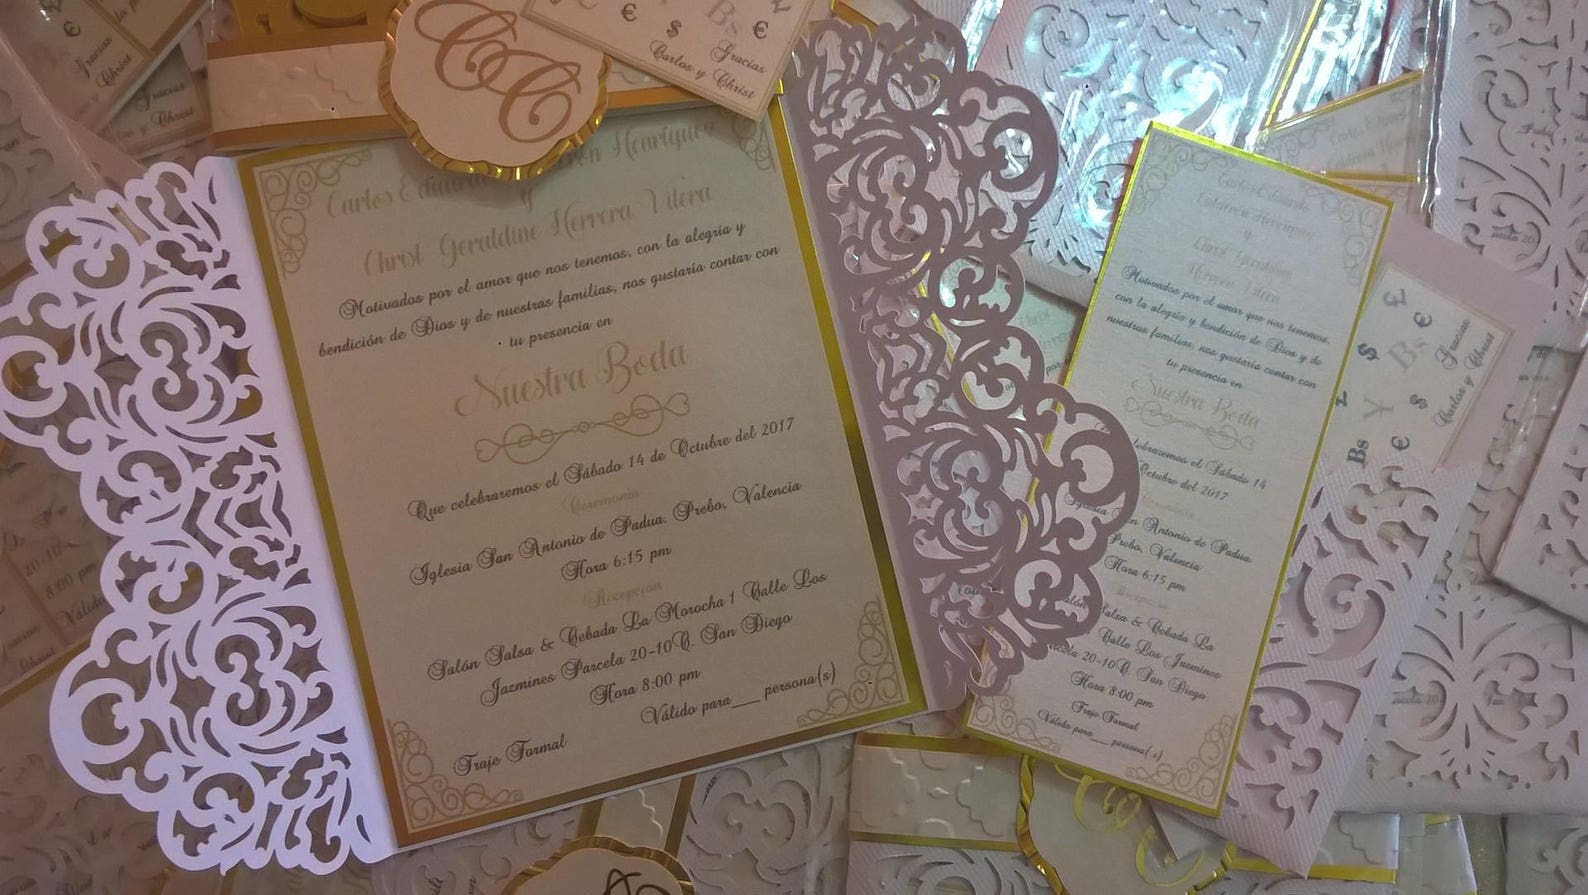 CC
€
$
Bs
£
€
Gracias
Carlos y Christ
Carlos Eduardo Henríquez
y
Christ Geraldine Herrera Vilera
Motivados por el amor que nos tenemos, con la alegría y
bendición de Dios y de nuestras familias, nos gustaría contar con
tu presencia en
Nuestra Boda
Que celebraremos el Sábado 14 de Octubre del 2017
Ceremonia
Iglesia San Antonio de Padua. Prebo, Valencia
Hora 6:15 pm
Recepción
Salón Salsa & Cebada La Morocha 1 Calle Los
Jazmines Parcela 20-10C. San Diego
Hora 8:00 pm
Válido para___ persona(s)
Traje Formal
Carlos Eduardo
Calderón Henríquez
y
Christ Geraldine
Herrera Vilera
Motivados por el amor que nos tenemos,
con la alegría y bendición de Dios y de
nuestras familias, nos gustaría contar con
tu presencia en
Nuestra Boda
celebraremos el Sábado 14
Octubre del 2017
Ceremonia
Iglesia San Antonio de Padua
Prebo, Valencia
Hora 6:15 pm
Recepción
Salón Salsa & Cebada La
Calle Los Jazmines
20-10C. San Diego
Hora 8:00 pm
Traje Formal
Válido para___ persona(s)
£
€
Bs
$
¥
$
€
Bs
Gracias
Carlos y Christ
€
Gracias
Christ
Gracias
y Christ
20-10
8:00 pm
Válido
Christ